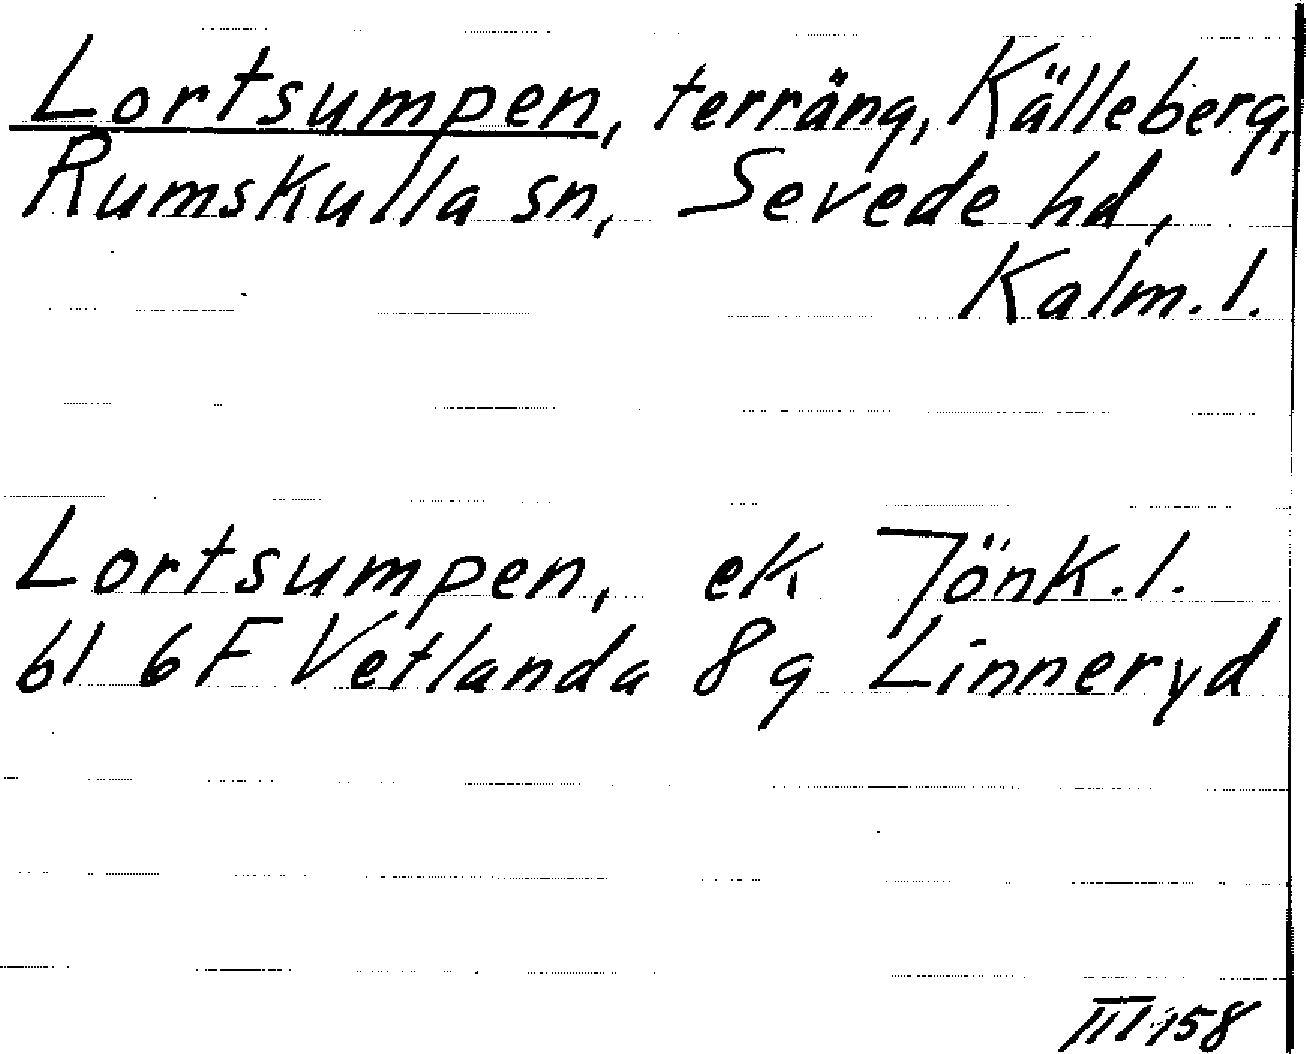 Lortsumpen, terräng, Källeberg,
Rumskulla sn, Sevede hd,
Kalm. l.
Lortsumpen, ek Jönk. l.
bl 6F Vetlanda 8g Linneryd
III 158